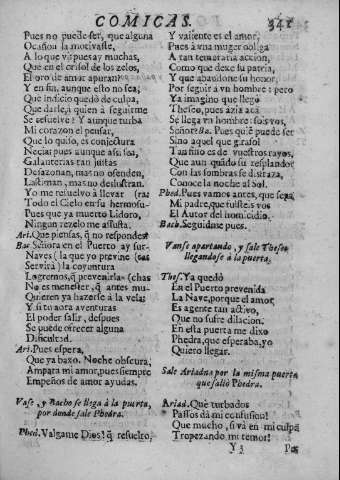 COMICAS. 341
Pues no puede ser, que alguna
Ocasion la motivasse,
A lo que vi; pues ay muchas,
Que en el crisol de los zelos,
El oro de amor apuran:
Y en fin, aunque esto no sea;
Que indicio quedò de culpa,
Que darle, à quien à seguirme
Se resuelve? Y aunque turba
Mi coraçon el pensar,
Que lo quiso, es conjectura
Necia; pues aunque assi sea,
Galanterias tan justas
Desazonan, mas no ofenden,
Lastiman, mas no deslustran.
Yo me resuelvo à llevar
Todo el Cielo en su hermosu- (ra:
Pues que ya muerto Lidoro,
Ningun rezelo me assusta.
Ari. Que piensas, q no respondes?
Bac. Señora en el Puerto ay sur-
Naves (la que yo previne (tas
Servirà) la coyuntura
Logremos, q prevenirlas (chas
No es menester, q antes mu-
Quieren ya hazerse à la vela:
Y si tu aora aventuras
El poder salir, despues
Se puede ofrecer alguna
Dificultad.
Ari. Pues espera,
Que ya baxo. Noche obscura,
Ampara mi amor, pues siempre
Empeños de amor ayudas.
Vase, y Bacho se llega à la puerta,
por donde sale Phedra.
Phed. Valgame Dios! q resuelto,
Y valiente es el amor,
Pues à vna muger obliga
A tan temeraria accion,
Como que dexe su patria,
Y que abandone su honor,
Por seguir à vn hombre: pero
Ya imagino que llegò
Theseo, pues azia acà
Se llega vn hombre: sois vos,
Señor? Ba. Pues quiè puede ser
Sino aquel que girasol
Tan fino es de vuestros rayos,
Que aun quãdo su resplandor
Con las sombras se disfraza,
Conoce la noche al Sol.
Phed. Pues vamos antes, que sepa
Mi padre, que fuisteis vos
El Autor del homicidio.
Bach. Seguidme pues.
Vanse apartando, y sale Theseo
llegandose à la puerta.
Thes. Ya quedò
En el Puerto prevenida
La Nave, porque el amor
Es agente tan activo,
Que no sufre dilacion.
En esta puerta me dixo
Phedra, que esperaba, yo
Quiero llegar.
Sale Ariadna por la misma puerta
que saliò Phedra.
Ariad. Què turbados
Passos dà mi confusion!
Que mucho, si và en mi culpa
Tropezando mi temor!
Y 3 Pas